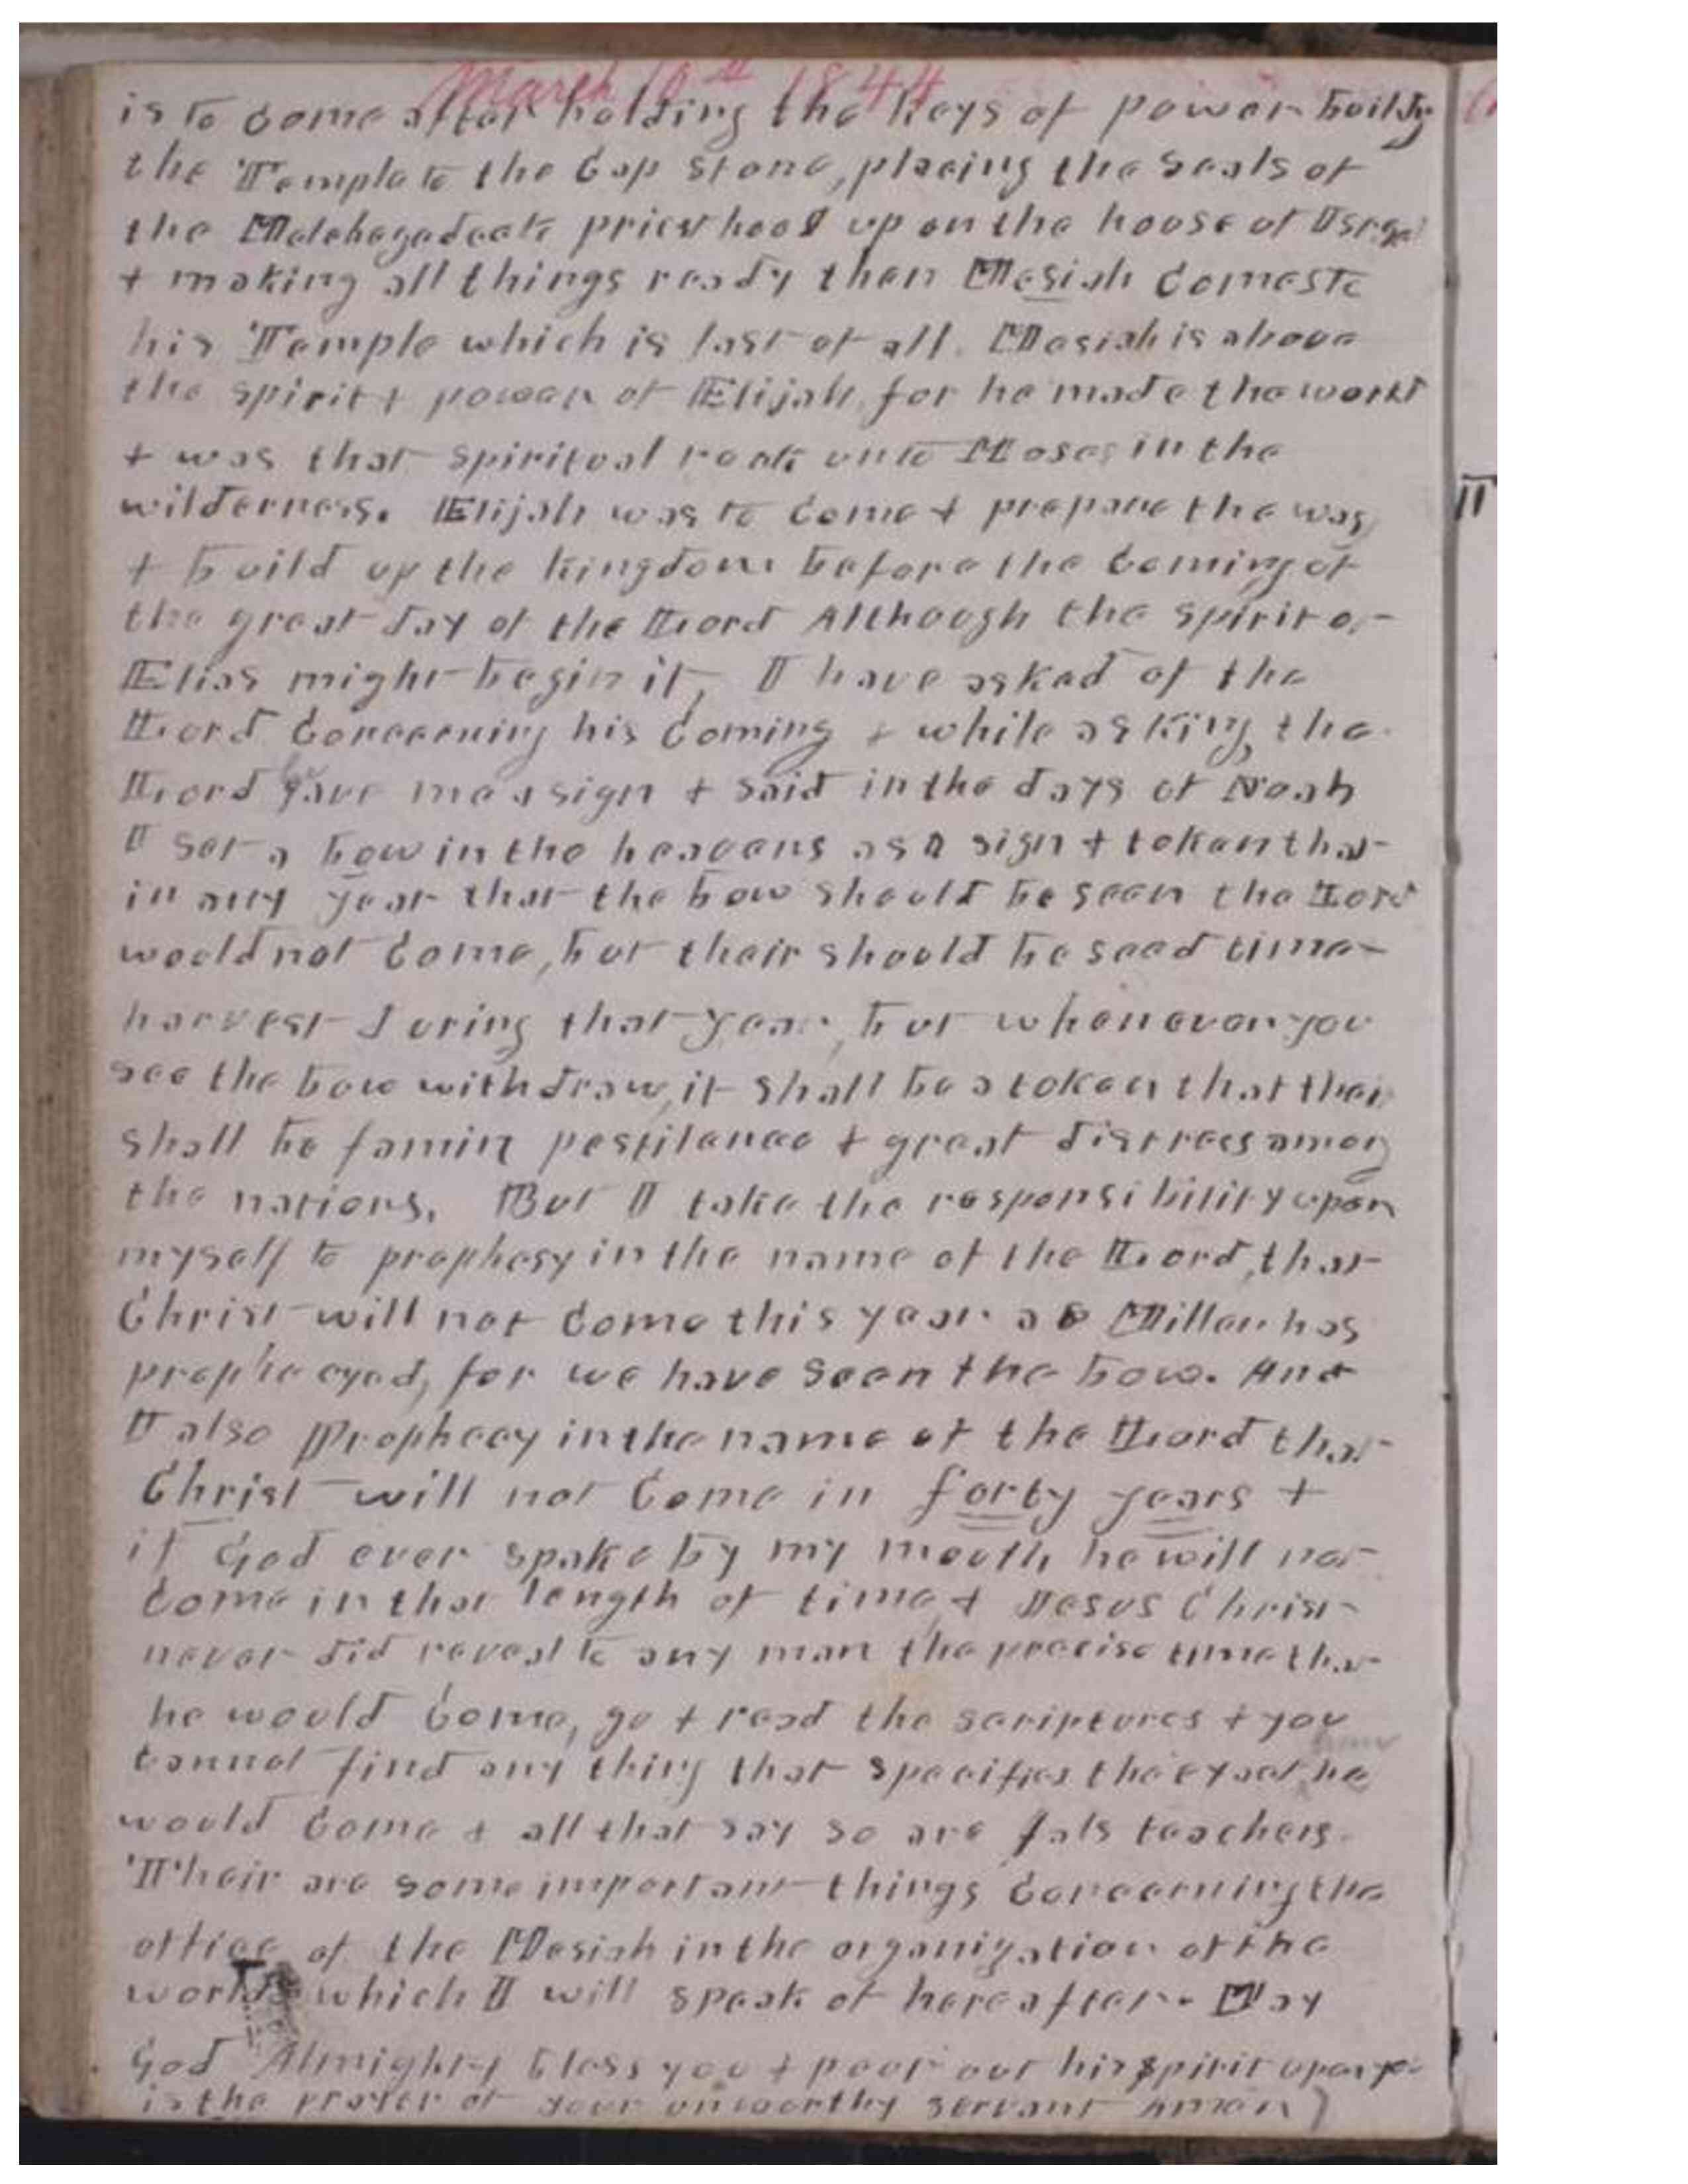 March 10th 1844
is to come after holding the keys of power builds
the Temple to the Cap Stone, placing the seals of
the Melchezadeck priesthood up on the house of Israel
+ making all things ready then Mesiah comes to
his Temple which is last of all. Mesiah is above
the spirit + power of Elijah, for he made the world
+ was that spiritual rock unto Moses in the
wilderness. Elijah was to come + prepare the way
+ build up the kingdom before the coming of
the great day of the Lord Although the spirit of
Elias might begin it, I have asked of the
Lord concerning his coming + while asking the
Lord gave me a sign + said in the days of Noah
I set a bow in the heavens as a sign + token that
in any year that the bow should be seen the Lord
would not come, but their should be seed time
harvest during that year, but whenever you
see the bow withdraw, it shall be a token that their
shall be famin pestilence + great distress among
the nations. But I take the responsibility upon
myself to prophesy in the name of the Lord, that
Christ will not come this year as Miller has
prophecyed, for we have seen the bow. And
I also Prophecy in the name of the Lord that
Christ will not come in forty years +
if God ever spake by my mouth he will not
come in that length of time, + Jesus Christ
never did reveal to any man the precise time that
he would come, go + read the scriptures + you
cannot find any thing that specifies the exact he
would come + all that say so are fals teachers.
Their are some important things concerning the
office of the Mesiah in the organization of the
world which I will speak of hereafter. May
God Almighty bless you + poor out his spirit upon you
is the prayer of your unworthy servant Amen)